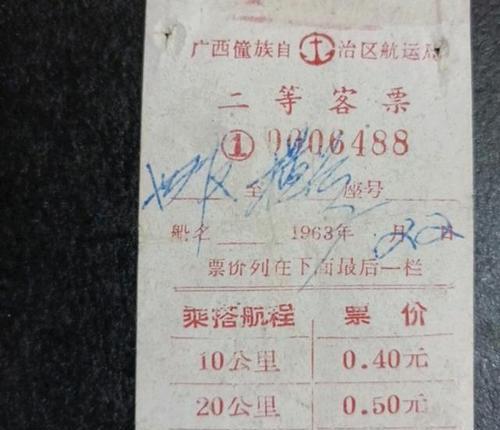 广西僮族自治区航运局
二等客票
① 0006488
至 座号
船名 1963年 月 日
票价列在下面最后一栏
乘搭航程 票价
10公里 0.40元
20公里 0.50元